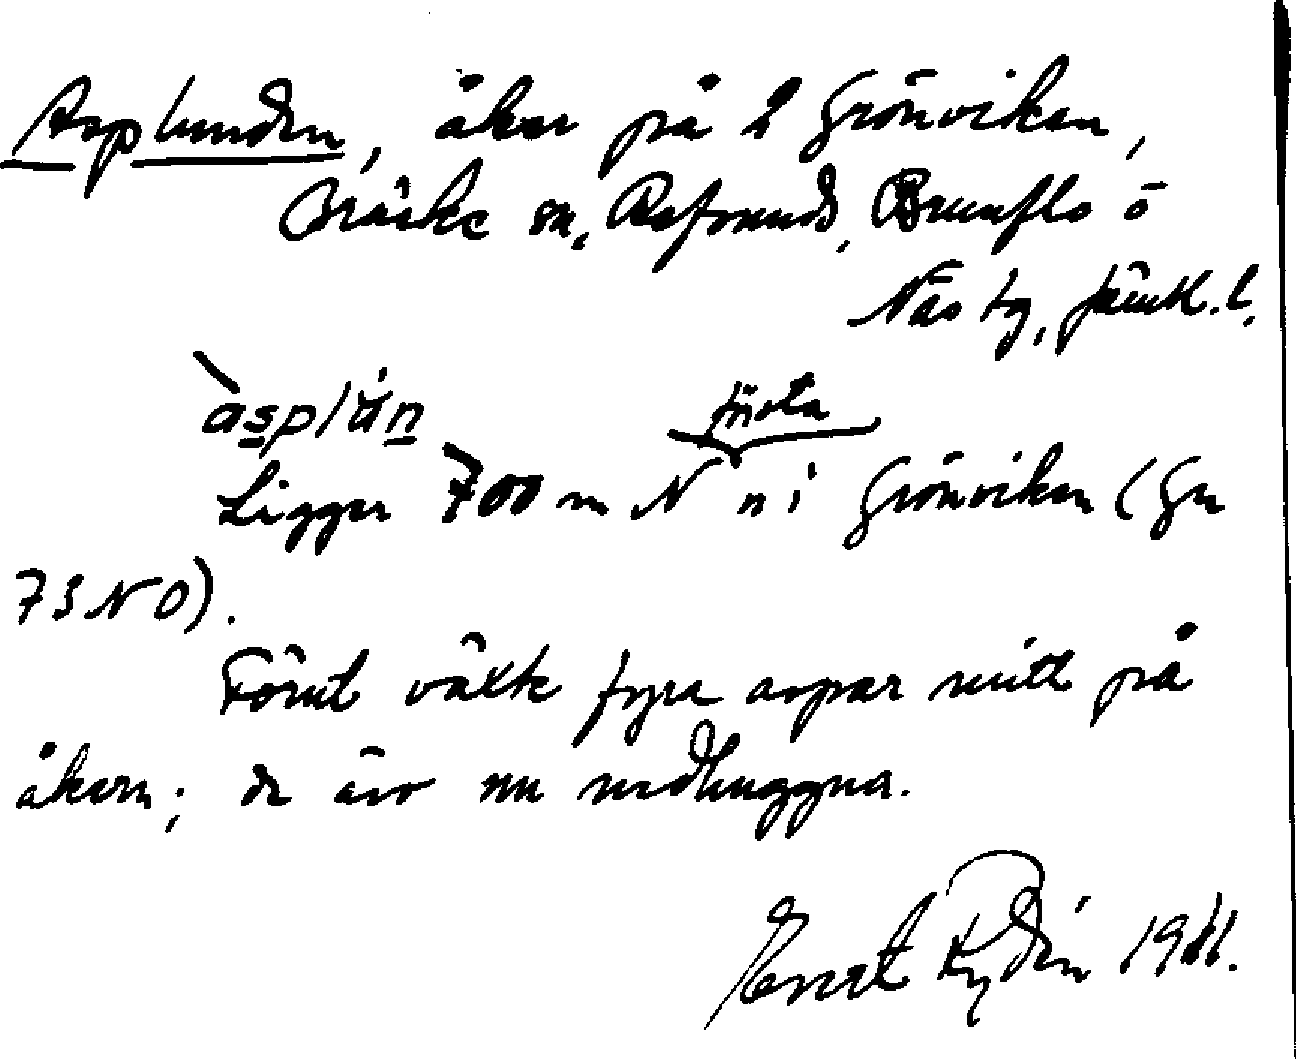 Asplunden, åker på 2 Grönviken,
Bräcke sn, Refsunds, Brunflo o
Näs tg, Jämtl. l.
àsplún
första
Ligger 700 m N n i Grönviken (Gr
73 NO).
Förut växte fyra aspar mitt på
åkern; de äro nu nedhuggna.
Ernst Rydin